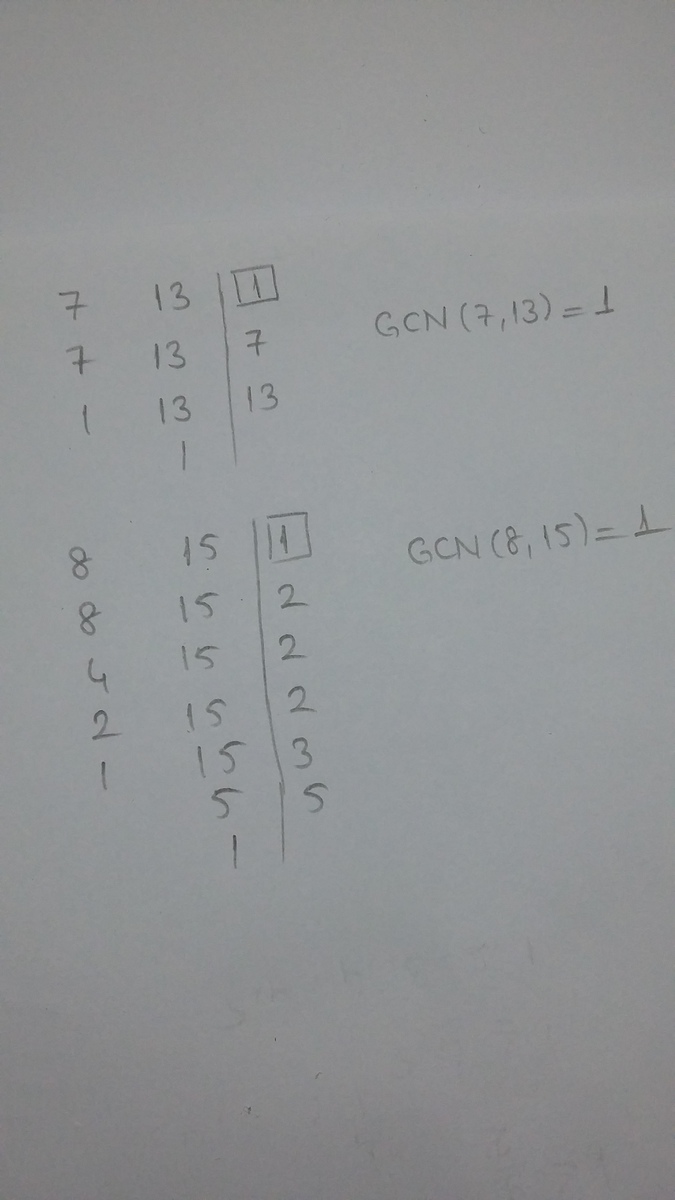 7 13 | 1 GCN(7,13)=1
7 13 | 7
1 13 | 13
1
8 15 | 1 GCN(8,15)=1
8 15 | 2
4 15 | 2
2 15 | 2
1 15 | 3
5 | 5
1